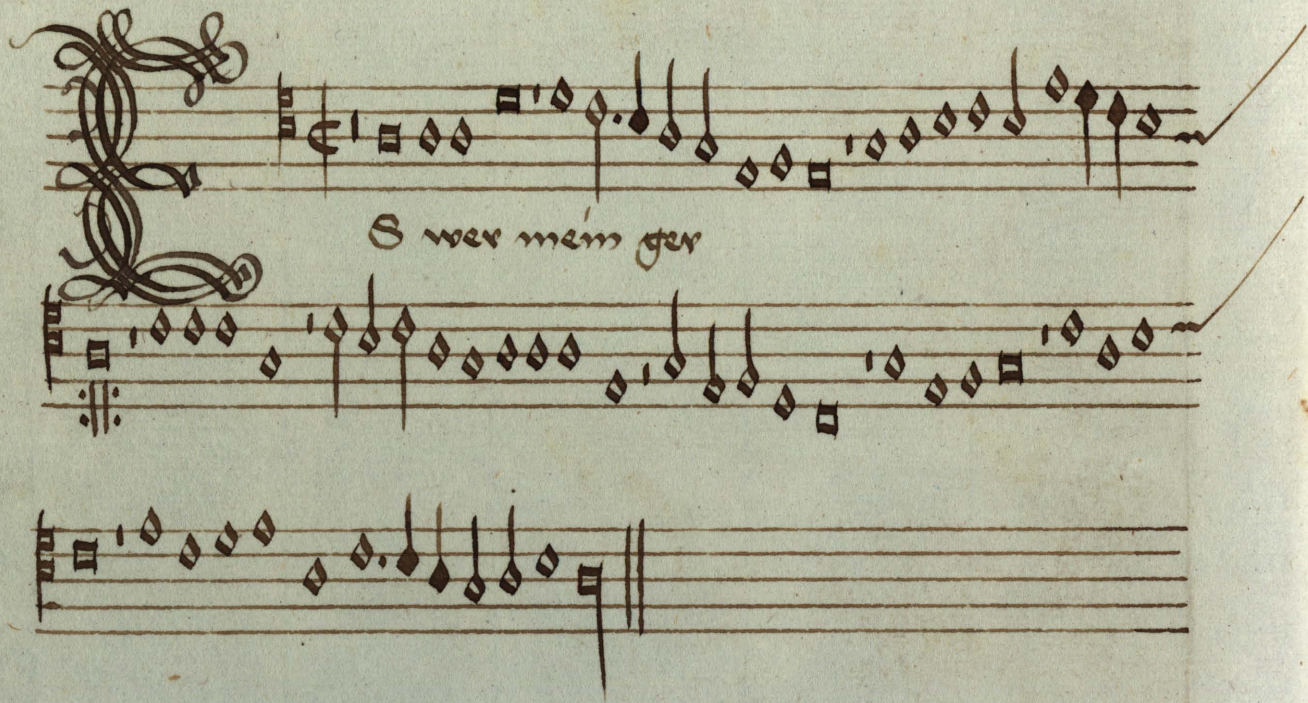 ES wer mein ger